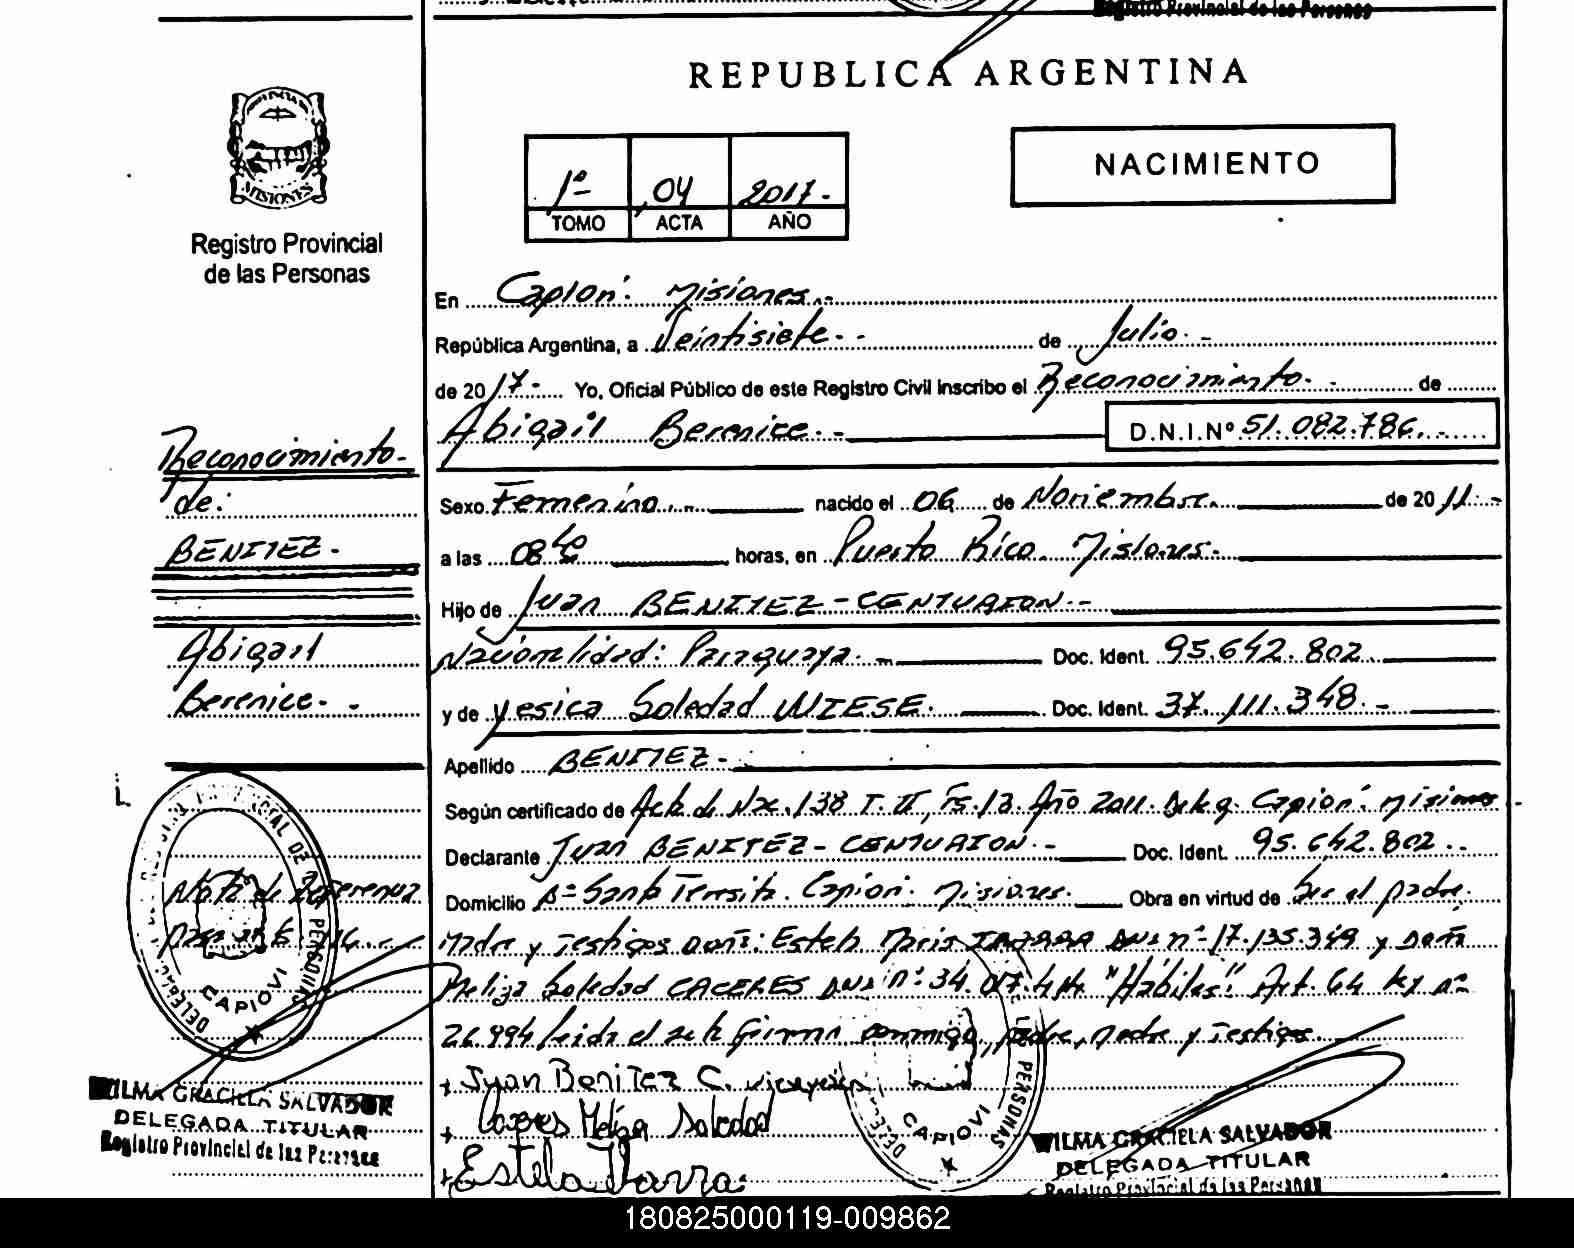 Registro Provincial de las Personas
REPUBLICA ARGENTINA
PROVINCIA DE
MISIONES
Registro Provincial
de las Personas
1º 04 2017.-
TOMO ACTA AÑO
NACIMIENTO
En Capioví. Misiones.-
República Argentina, a Veintisiete.- de Julio.-
de 2017.- Yo, Oficial Público de este Registro Civil Inscribo el Reconocimiento.- de
Abigail Berenice.- D.N.I.Nº 51.082.786.-
Sexo Femenino.- nacido el 06 de Noviembre. de 2011.-
a las 08 40 horas, en Puerto Rico. Misiones.-
Hijo de Juan BENITEZ-CENTURION.-
Nacionalidad: Paraguaya.- Doc. Ident. 95.642.802.
y de Yesica Soledad WIESE. Doc. Ident. 37.111.348.-
Apellido BENITEZ-.
Según certificado de Acta de Nac. 138 T. II, Fs. 13. Año 2011. Deleg. Capioví. Misiones
Declarante Juan BENITEZ-CENTURION.- Doc. Ident. 95.642.802..
Domicilio Bº Santa Teresita. Capioví. Misiones. Obra en virtud de Ser el padre.
madre y Testigos Doña: Estela IBARRA DNI nº 17.135.349 y Doña
Meliza Soledad CACERES DNI nº: 34. "Hábiles" Art. 64 Ley nº
26.994 leida el acta firman conmigo, padre, madre y Testigos.
Reconocimiento-
de:
BENITEZ-
Abigail
Berenice.-
Nota de Referencia
CAPIOVI
WILMA GRACIELA SALVADOR
DELEGADA TITULAR
Registro Provincial de las Personas
+ Juan Benitez C.
+ Caceres Meliza Soledad
+ Estela Ibarra
PERSONAS
CAPIOVI
WILMA GRACIELA SALVADOR
DELEGADA TITULAR
Registro Provincial de las Personas
180825000119-009862